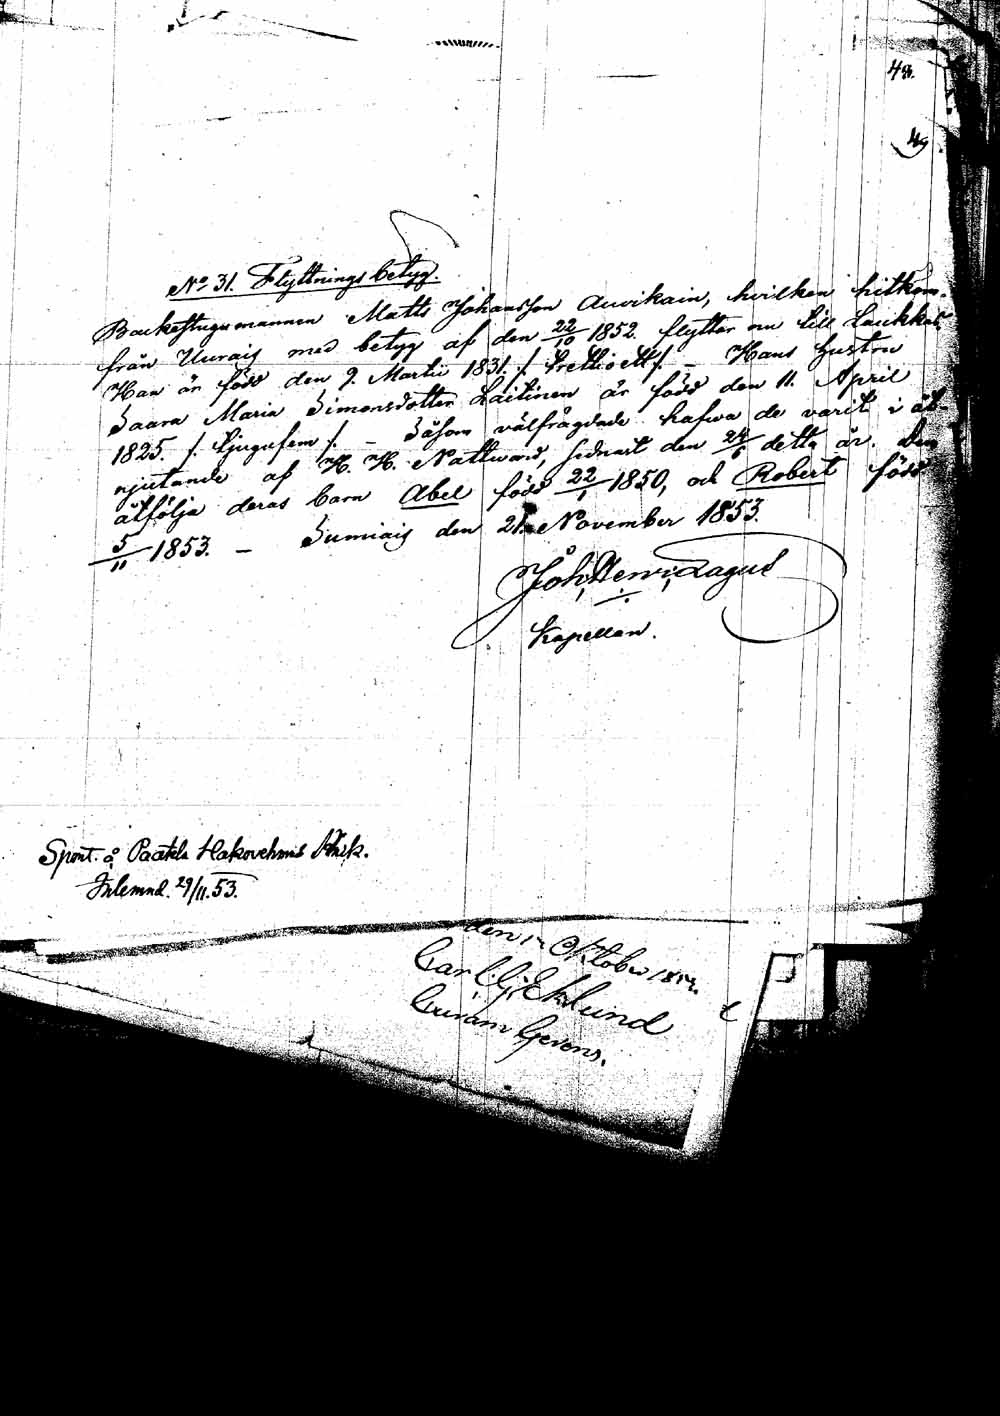 48.
49
No 31. Flyttningsbetyg.
Backestugumannen Matts Johansson Auvikain, hvilken hitkom
från Uuraig med betyg af den 22/10 1852. flyttar nu till Laukkas
Han är född den 9. Martii 1831. /. trettioett /. – Hans hustru
Saara Maria Simonsdotter Laitinen är född den 11. April
1825. /. tjugufem /. – Såsom välfrägdade hafva de varit i åt-
njutande af H. H. Nattward, sednast den 24/6 detta år. Dem
åtfölja deras barn Abel född 22/1 1850, och Robert född
5/11 1853. – Sumiaig den 21. November 1853.
Joh. Henr. Lagus
Kapellan.
Spont. å Paatela Hakovehmas
Inlemnd. 29/11. 53.
den 12 Oktober
Carl. G. Eklund
Curam Gerens.